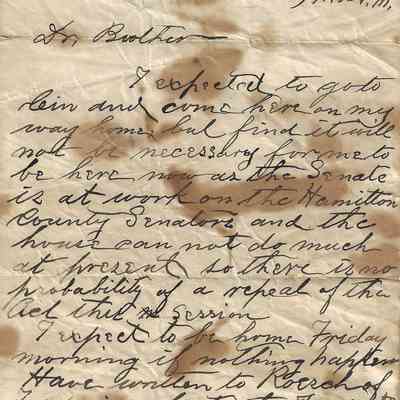 Dr Brother
I expected to go to
Cin and come here on my
way home but find it will
not be necessary for me to
be here now as the Senate
is at work on the Hamilton
County Senators and the
house can not do much
at present so there is no
probability of a repeal of the
Act this Session
I expect to be home Friday
morning if nothing happen
Have written to